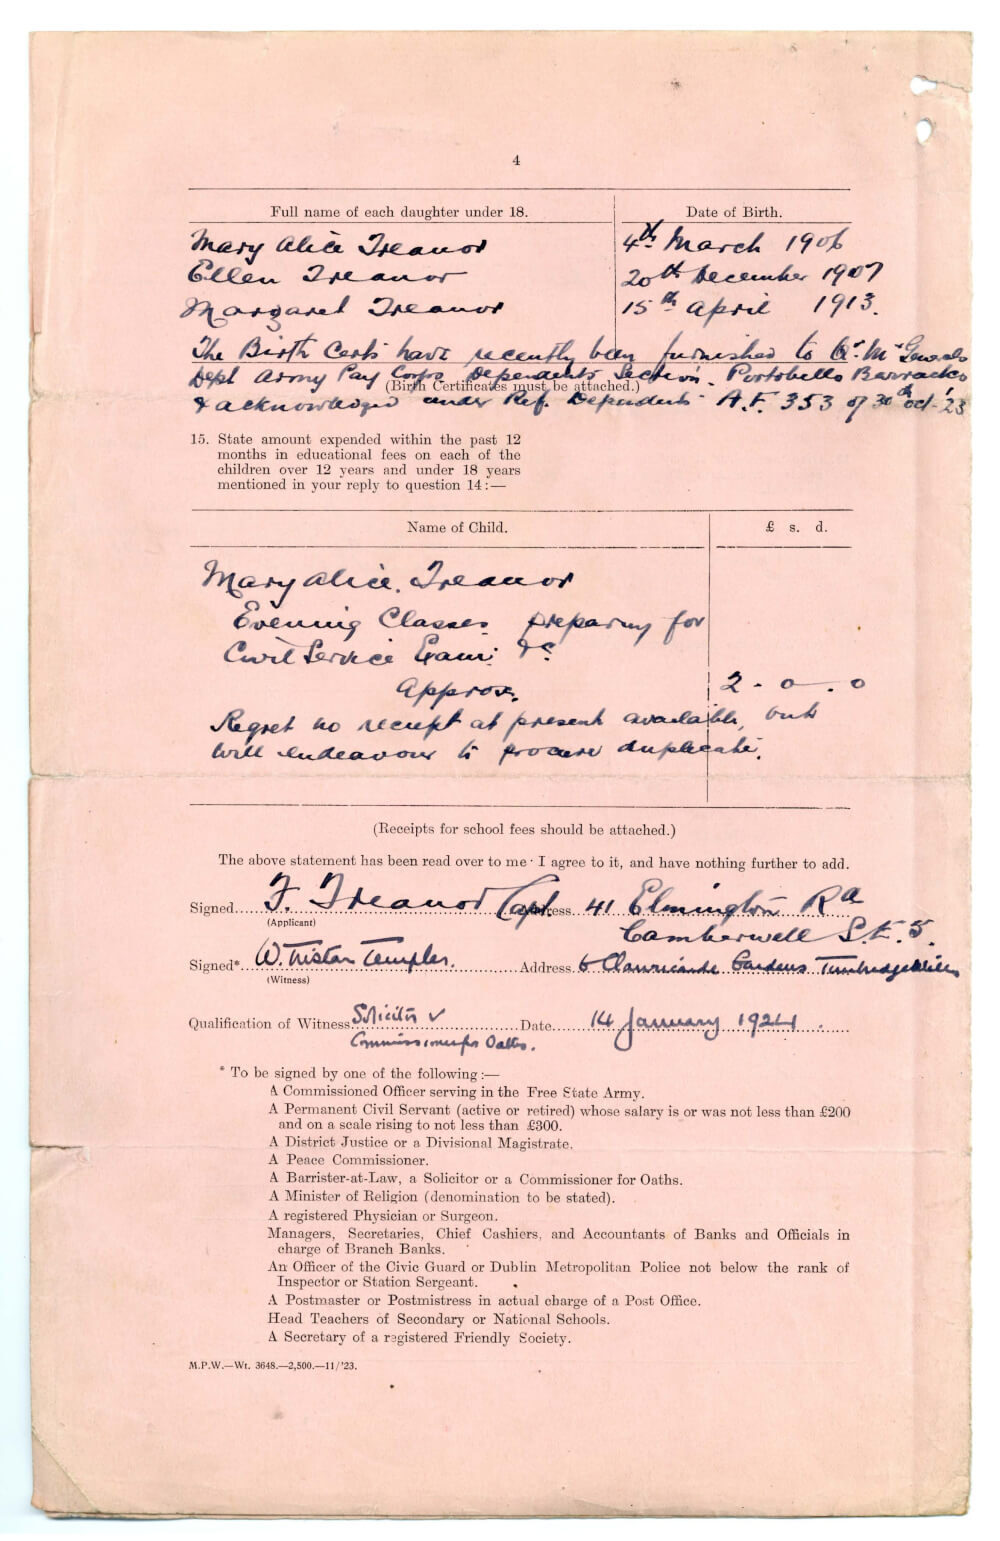 4
Full name of each daughter under 18. Date of Birth.
Mary Alice Treanor 4th March 1906
Ellen Treanor 20th December 1907
Margaret Treanor 15th April 1913.
The Birth Certs have recently been furnished to Qr. Mr. Generals
Dept Army Pay Corps Dependents Section. Portobello Barracks
(Birth Certificates must be attached.)
& acknowledged under Ref. Dependents A.F. 353 of 30th Oct. '23
15. State amount expended within the past 12
months in educational fees on each of the
children over 12 years and under 18 years
mentioned in your reply to question 14:—
Name of Child. £ s. d.
Mary Alice. Treanor
Evening Classes preparing for
Civil Service Exam: &c
Approx. 2 - 0 - 0
Regret no receipt at present available, but
will endeavour to procure duplicate.
(Receipts for school fees should be attached.)
The above statement has been read over to me · I agree to it, and have nothing further to add.
Signed F. Treanor Capt. Address 41 Elmington Rd
(Applicant)
Camberwell S.E. 5.
Signed* W. Tristan Templer. Address 6 Clanricarde Gardens Tunbridge Wells
(Witness)
Qualification of Witness Solicitor Date 14 January 1924.
Commissioner for Oaths.
* To be signed by one of the following:—
A Commissioned Officer serving in the Free State Army.
A Permanent Civil Servant (active or retired) whose salary is or was not less than £200
and on a scale rising to not less than £300.
A District Justice or a Divisional Magistrate.
A Peace Commissioner.
A Barrister-at-Law, a Solicitor or a Commissioner for Oaths.
A Minister of Religion (denomination to be stated).
A registered Physician or Surgeon.
Managers, Secretaries, Chief Cashiers, and Accountants of Banks and Officials in
charge of Branch Banks.
An Officer of the Civic Guard or Dublin Metropolitan Police not below the rank of
Inspector or Station Sergeant.
A Postmaster or Postmistress in actual charge of a Post Office.
Head Teachers of Secondary or National Schools.
A Secretary of a registered Friendly Society.
M.P.W.—Wt. 3648.—2,500.—11/'23.